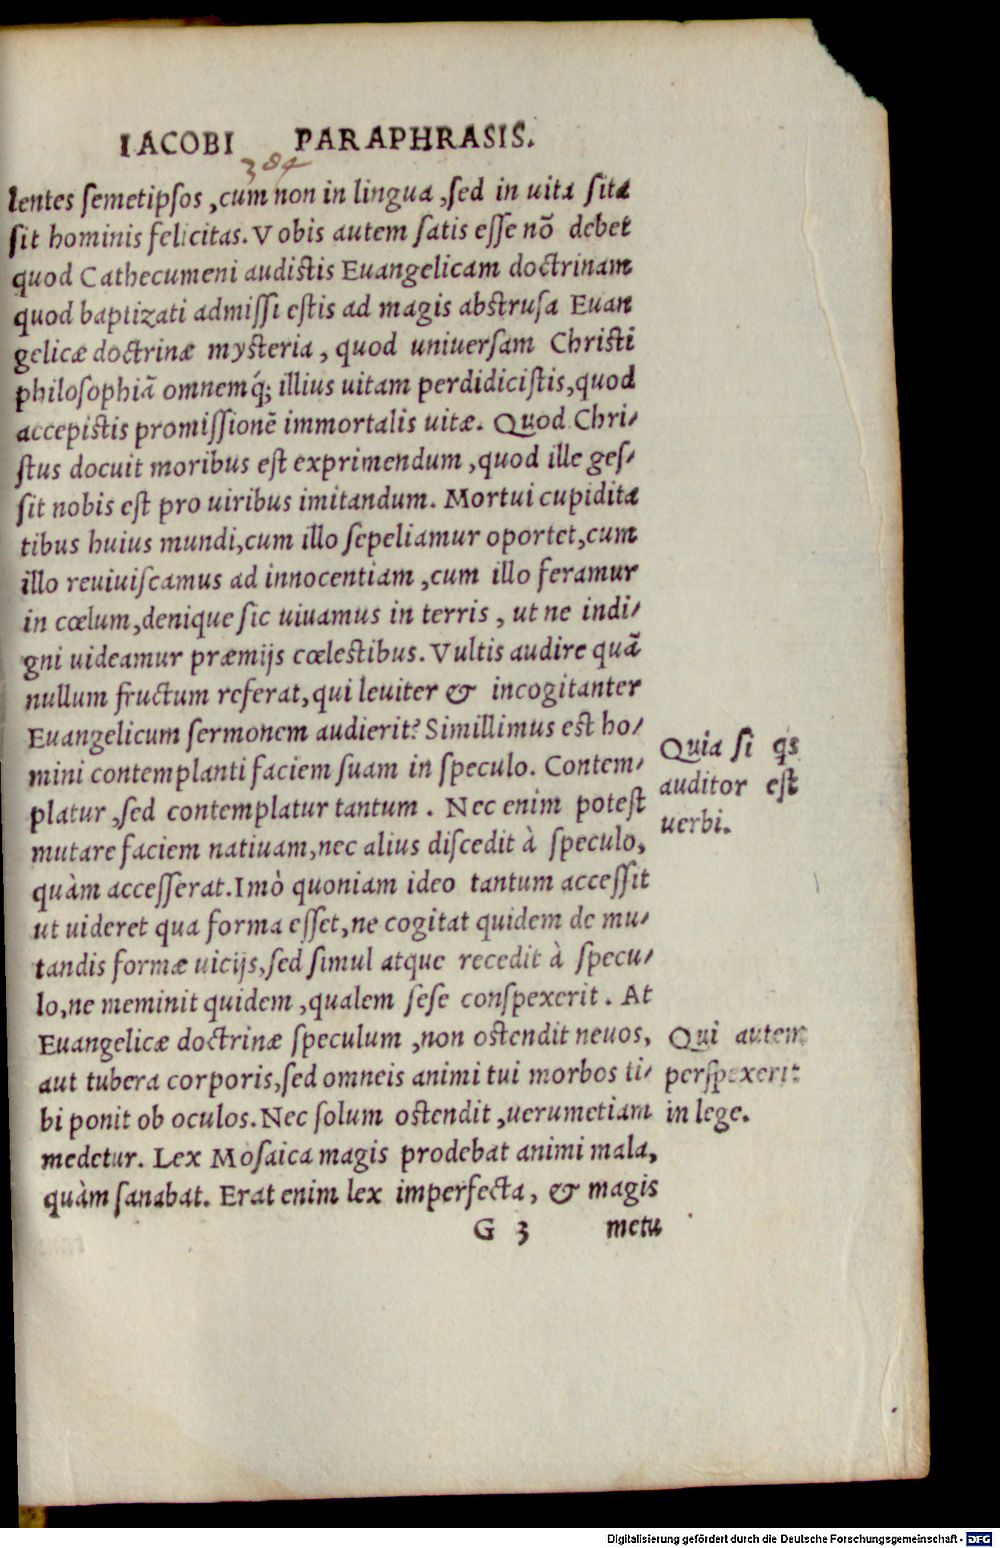 IACOBI PARAPHRASIS.
384
lentes semetipsos, cum non in lingua, sed in uita sita
sit hominis felicitas. Vobis autem satis esse nõ debet
quod Cathecumeni audistis Euangelicam doctrinam
quod baptizati admissi estis ad magis abstrusa Euan
gelicæ doctrinæ mysteria, quod uniuersam Christi
philosophiã omnemq́; illius uitam perdidicistis, quod
accepistis promissionẽ immortalis uitæ. Quod Chri-
stus docuit moribus est exprimendum, quod ille ges-
sit nobis est pro uiribus imitandum. Mortui cupidita
tibus huius mundi, cum illo sepeliamur oportet, cum
illo reuiuiscamus ad innocentiam, cum illo feramur
in cœlum, denique sic uiuamus in terris, ut ne indi-
gni uideamur præmijs cœlestibus. Vultis audire quã
nullum fructum referat, qui leuiter & incogitanter
Euangelicum sermonem audierit? Simillimus est ho-
mini contemplanti faciem suam in speculo. Contem-
platur, sed contemplatur tantum. Nec enim potest
mutare faciem natiuam, nec alius discedit à speculo,
quàm accesserat. Imò quoniam ideo tantum accessit
ut uideret qua forma esset, ne cogitat quidem de mu-
tandis formæ uicijs, sed simul atque recedit à specu-
lo, ne meminit quidem, qualem sese conspexerit. At
Euangelicæ doctrinæ speculum, non ostendit neuos,
aut tubera corporis, sed omneis animi tui morbos ti-
bi ponit ob oculos. Nec solum ostendit, uerumetiam
medetur. Lex Mosaica magis prodebat animi mala,
quàm sanabat. Erat enim lex imperfecta, & magis
G 3 metu
Quia si qs
auditor est
uerbi.
Qui autem
perspexerit
in lege.
Digitalisierung gefördert durch die Deutsche Forschungsgemeinschaft - DFG